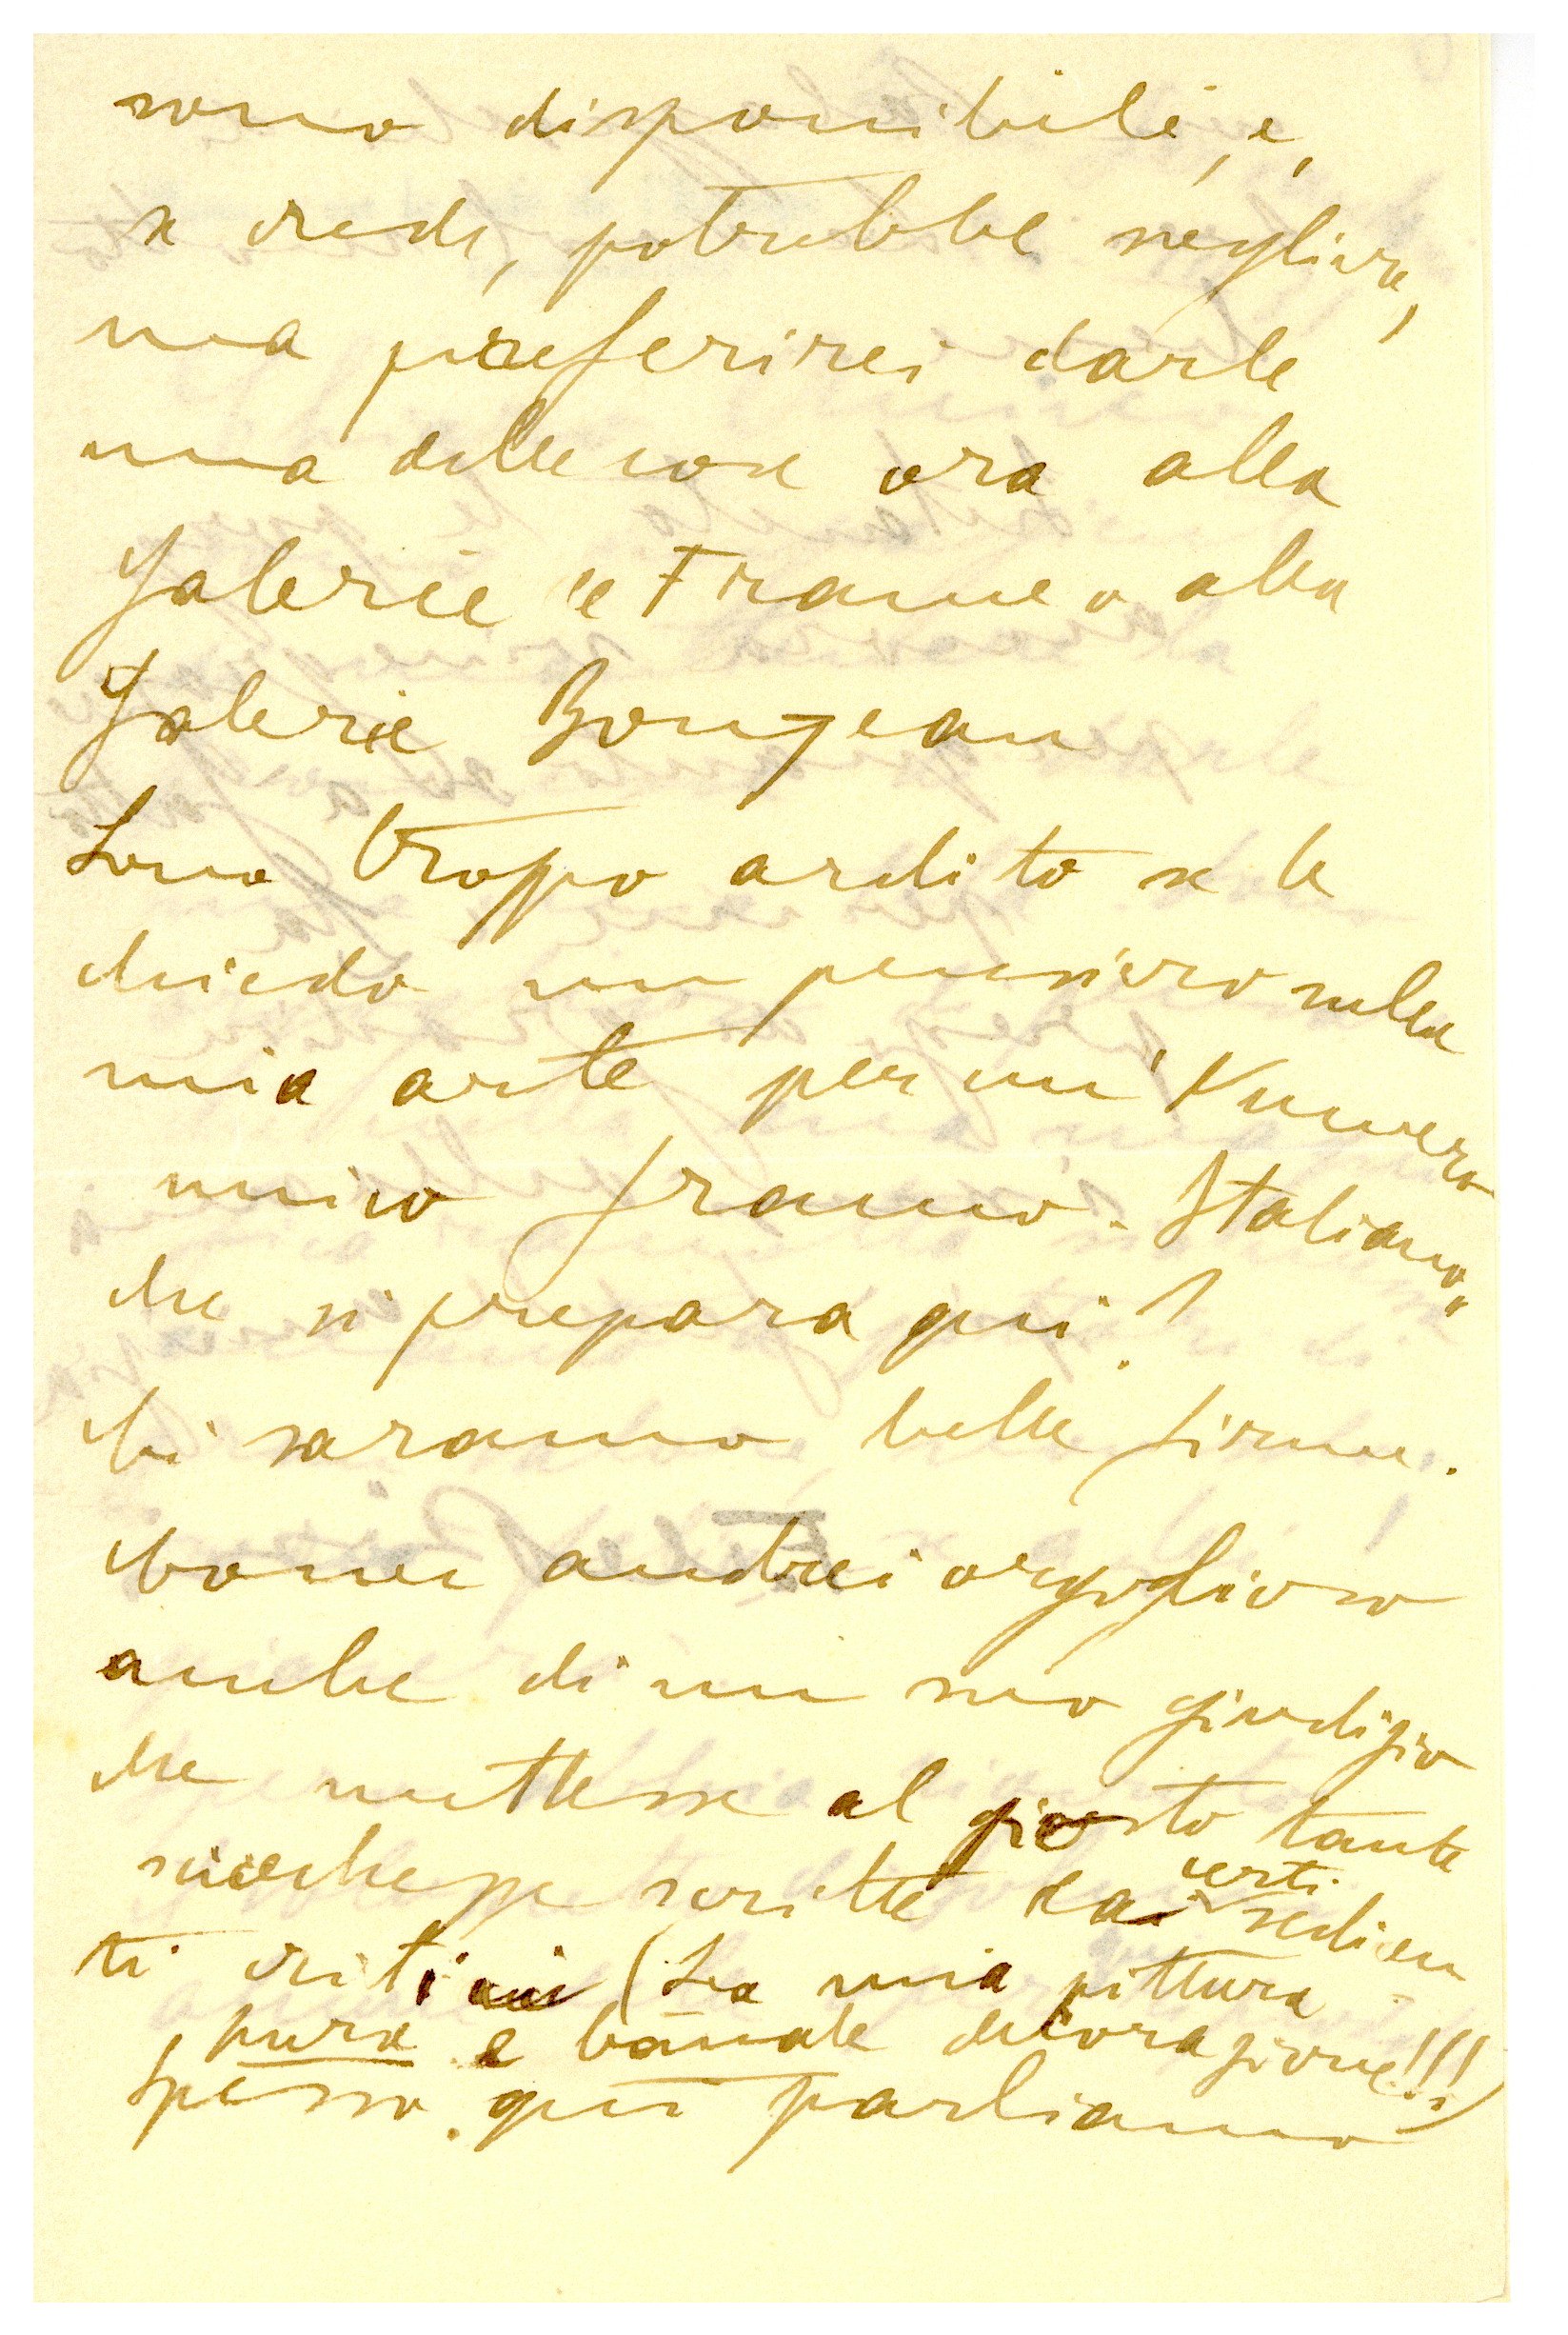 sono disponibile, e,
se crede, potrebbe scegliere,
ma preferirei darle
una delle cose ora alla
Galerie de France o alla
Galerie Bongean
Sono troppo ardito se le
chiedo un pensiero sulla
mia arte per un "Numero
unico franco-Italiano"
che si prepara qui?
Ci saranno belle firme.
Come andrei orgoglioso
anche di un suo giudizio
che mettesse al giusto tante
sciocchezze scritte da certi
sedicen
ti critici (La mia pittura
pura è banale decorazione!!!)
Spesso qui parliamo